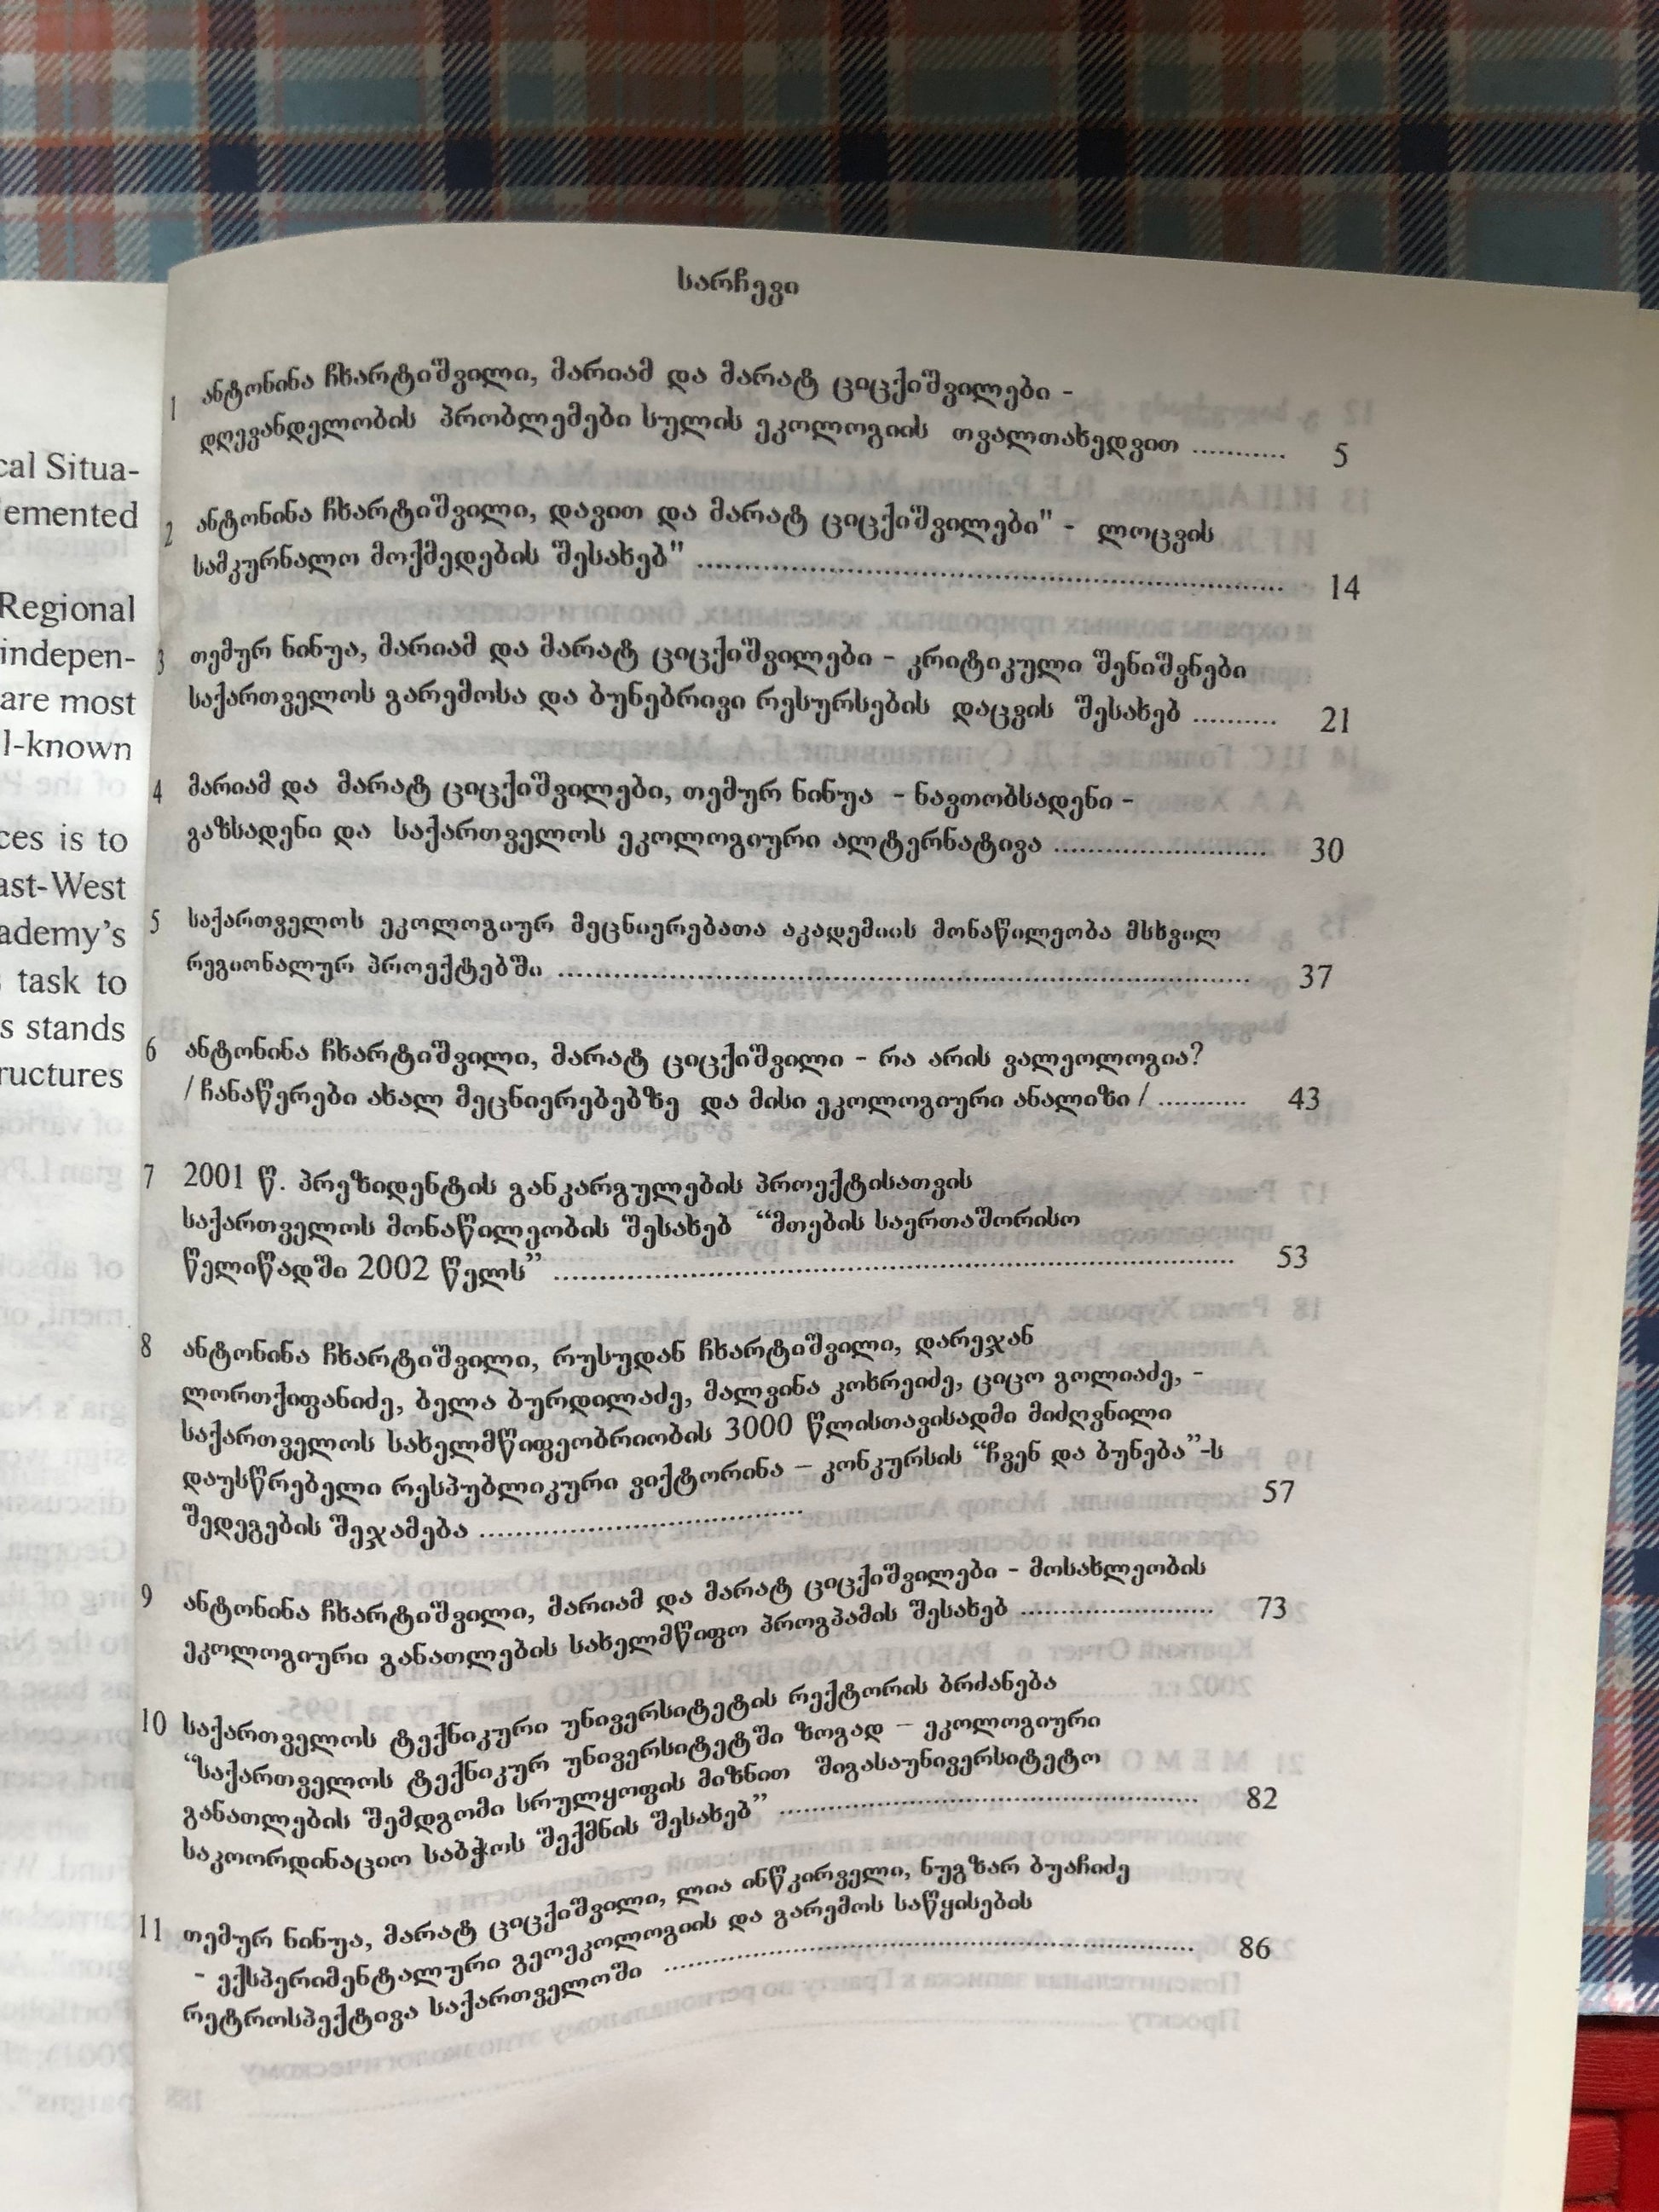 cal Situa-
lemented
Regional
indepen-
are most
l-known
ces is to
ast-West
ademy's
task to
s stands
ructures
სარჩევი
1 ანტონინა ჩხარტიშვილი, მარიამ და მარატ ციცქიშვილები -
დღევანდელობის პრობლემები სულის ეკოლოგიის თვალთახედვით ........... 5
2 ანტონინა ჩხარტიშვილი, დავით და მარატ ციცქიშვილები" - ლოცვის
სამკურნალო მოქმედების შესახებ" ........................................................ 14
3 თემურ ნინუა, მარიამ და მარატ ციცქიშვილები - კრიტიკული შენიშვნები
საქართველოს გარემოსა და ბუნებრივი რესურსების დაცვის შესახებ .......... 21
4 მარიამ და მარატ ციცქიშვილები, თემურ ნინუა - ნავთობსადენი -
გაზსადენი და საქართველოს ეკოლოგიური ალტერნატივა ......................... 30
5 საქართველოს ეკოლოგიურ მეცნიერებათა აკადემიის მონაწილეობა მსხვილ
რეგიონალურ პროექტებში .................................................................. 37
6 ანტონინა ჩხარტიშვილი, მარატ ციცქიშვილი - რა არის ვალეოლოგია?
/ ჩანაწერები ახალ მეცნიერებებზე და მისი ეკოლოგიური ანალიზი / ........... 43
7 2001 წ. პრეზიდენტის განკარგულების პროექტისათვის
საქართველოს მონაწილეობის შესახებ “მთების საერთაშორისო
წელიწადში 2002 წელს” .................................................................. 53
8 ანტონინა ჩხარტიშვილი, რუსუდან ჩხარტიშვილი, დარეჯან
ლორთქიფანიძე, ბელა ბურდილაძე, მალვინა კოხრეიძე, ციცო გოლიაძე, -
საქართველოს სახელმწიფეობრიობის 3000 წლისთავისადმი მიძღვნილი
დაუსწრებელი რესპუბლიკური ვიქტორინა – კონკურსის “ჩვენ და ბუნება”-ს
შედეგების შეჯამება ........................................ 57
9 ანტონინა ჩხარტიშვილი, მარიამ და მარატ ციცქიშვილები - მოსახლეობის
ეკოლოგიური განათლების სახელმწიფო პროგპამის შესახებ ....................... 73
10 საქართველოს ტექნიკური უნივერსიტეტის რექტორის ბრძანება
“საქართველოს ტექნიკურ უნივერსიტეტში ზოგად – ეკოლოგიური
განათლების შემდგომი სრულყოფის მიზნით შიგასაუნივერსიტეტო
საკოორდინაციო საბჭოს შექმნის შესახებ” .................................................. 82
11 თემურ ნინუა, მარატ ციცქიშვილი, ლია ინწკირველი, ნუგზარ ბუაჩიძე
- ექსპერიმენტალური გეოეკოლოგიის და გარემოს საწყისების
რეტროსპექტივა საქართველოში ............................................................ 86